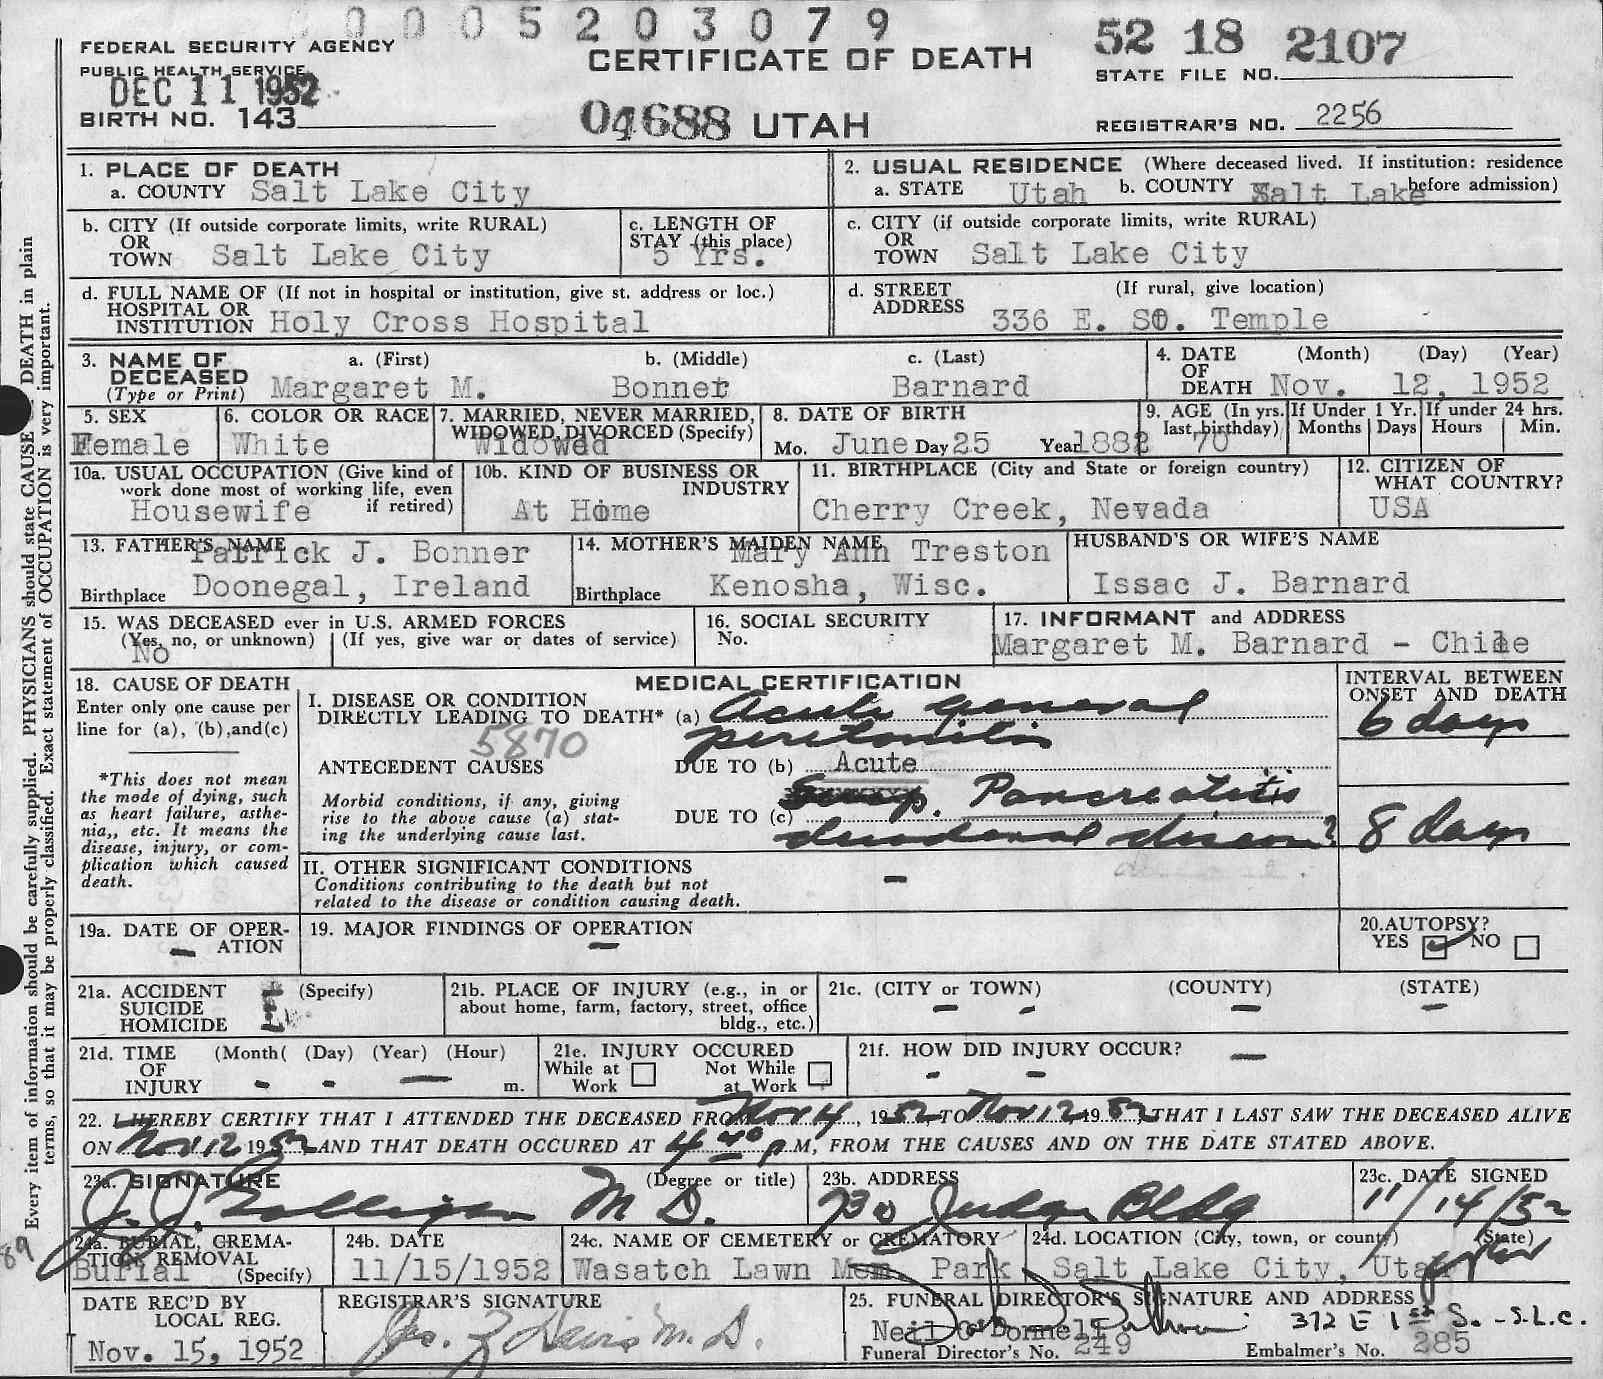 0005203079
FEDERAL SECURITY AGENCY
PUBLIC HEALTH SERVICE
DEC 11 1952
BIRTH NO. 143
CERTIFICATE OF DEATH
04688 UTAH
52 18 2107
STATE FILE NO.
REGISTRAR'S NO. 2256
1. PLACE OF DEATH
a. COUNTY Salt Lake City
2. USUAL RESIDENCE (Where deceased lived. If institution: residence before admission)
a. STATE Utah b. COUNTY Salt Lake
b. CITY (If outside corporate limits, write RURAL)
OR
TOWN Salt Lake City
c. LENGTH OF
STAY (this place)
5 Yrs.
c. CITY (if outside corporate limits, write RURAL)
OR
TOWN Salt Lake City
d. FULL NAME OF (If not in hospital or institution, give st. address or loc.)
HOSPITAL OR
INSTITUTION Holy Cross Hospital
d. STREET (If rural, give location)
ADDRESS
336 E. SO. Temple
3. NAME OF DECEASED
(Type or Print)
a. (First) b. (Middle) c. (Last)
Margaret M. Bonner Barnard
4. DATE OF DEATH (Month) (Day) (Year)
Nov. 12, 1952
5. SEX
Female
6. COLOR OR RACE
White
7. MARRIED, NEVER MARRIED,
WIDOWED, DIVORCED (Specify)
Widowed
8. DATE OF BIRTH
Mo. June Day 25 Year 1882
9. AGE (In yrs. last birthday)
70
If Under 1 Yr.
Months Days
If under 24 hrs.
Hours Min.
10a. USUAL OCCUPATION (Give kind of
work done most of working life, even
if retired)
Housewife
10b. KIND OF BUSINESS OR
INDUSTRY
At Home
11. BIRTHPLACE (City and State or foreign country)
Cherry Creek, Nevada
12. CITIZEN OF
WHAT COUNTRY?
USA
13. FATHER'S NAME
Patrick J. Bonner
Birthplace Doonegal, Ireland
14. MOTHER'S MAIDEN NAME
Mary Ann Treston
Birthplace Kenosha, Wisc.
HUSBAND'S OR WIFE'S NAME
Issac J. Barnard
15. WAS DECEASED ever in U.S. ARMED FORCES
(Yes, no, or unknown) (If yes, give war or dates of service)
No
16. SOCIAL SECURITY
No.
17. INFORMANT and ADDRESS
Margaret M. Barnard - Chile
18. CAUSE OF DEATH
Enter only one cause per
line for (a), (b),and(c)
*This does not mean
the mode of dying, such
as heart failure, asthe-
nia,, etc. It means the
disease, injury, or com-
plication which caused
death.
MEDICAL CERTIFICATION
I. DISEASE OR CONDITION
DIRECTLY LEADING TO DEATH* (a) Acute general
peritonitis
5870
ANTECEDENT CAUSES
DUE TO (b) Acute
Pancreatitis
Morbid conditions, if any, giving
rise to the above cause (a) stat-
ing the underlying cause last.
DUE TO (c)
duodenal
INTERVAL BETWEEN
ONSET AND DEATH
6 days
8 days
II. OTHER SIGNIFICANT CONDITIONS
Conditions contributing to the death but not
related to the disease or condition causing death.
-
19a. DATE OF OPER-
- ATION
19. MAJOR FINDINGS OF OPERATION
-
20. AUTOPSY?
YES ✓ NO
21a. ACCIDENT
SUICIDE
HOMICIDE
(Specify)
21b. PLACE OF INJURY (e.g., in or
about home, farm, factory, street, office
bldg., etc.)
21c. (CITY or TOWN) (COUNTY) (STATE)
- - - -
21d. TIME
OF
INJURY
(Month( (Day) (Year) (Hour)
- - - m.
21e. INJURY OCCURED
While at Work Not While at Work
21f. HOW DID INJURY OCCUR? -
- -
22. I HEREBY CERTIFY THAT I ATTENDED THE DECEASED FROM Nov 4, 1952, TO Nov 12, 1952, THAT I LAST SAW THE DECEASED ALIVE
ON Nov 12 1952 AND THAT DEATH OCCURED AT 4 40 P.M, FROM THE CAUSES AND ON THE DATE STATED ABOVE.
23a. SIGNATURE (Degree or title)
J. J. Galligan M D.
23b. ADDRESS
730 Judge Bldg
23c. DATE SIGNED
11/14/52
24a. BURIAL, CREMA-
TION, REMOVAL
(Specify)
Burial
24b. DATE
11/15/1952
24c. NAME OF CEMETERY or CREMATORY
Wasatch Lawn Mem. Park
24d. LOCATION (City, town, or county) (State)
Salt Lake City, Utah
DATE REC'D BY
LOCAL REG.
Nov. 15, 1952
REGISTRAR'S SIGNATURE
M. D.
25. FUNERAL DIRECTOR'S SIGNATURE AND ADDRESS
372 E 1st S. - S.L.C.
Neil O'Donnell
Funeral Director's No. 249
Embalmer's No. 285
Every item of information should be carefully supplied. PHYSICIANS should state CAUSE DEATH in plain
terms, so that it may be properly classified. Exact statement of OCCUPATION is very important.
89